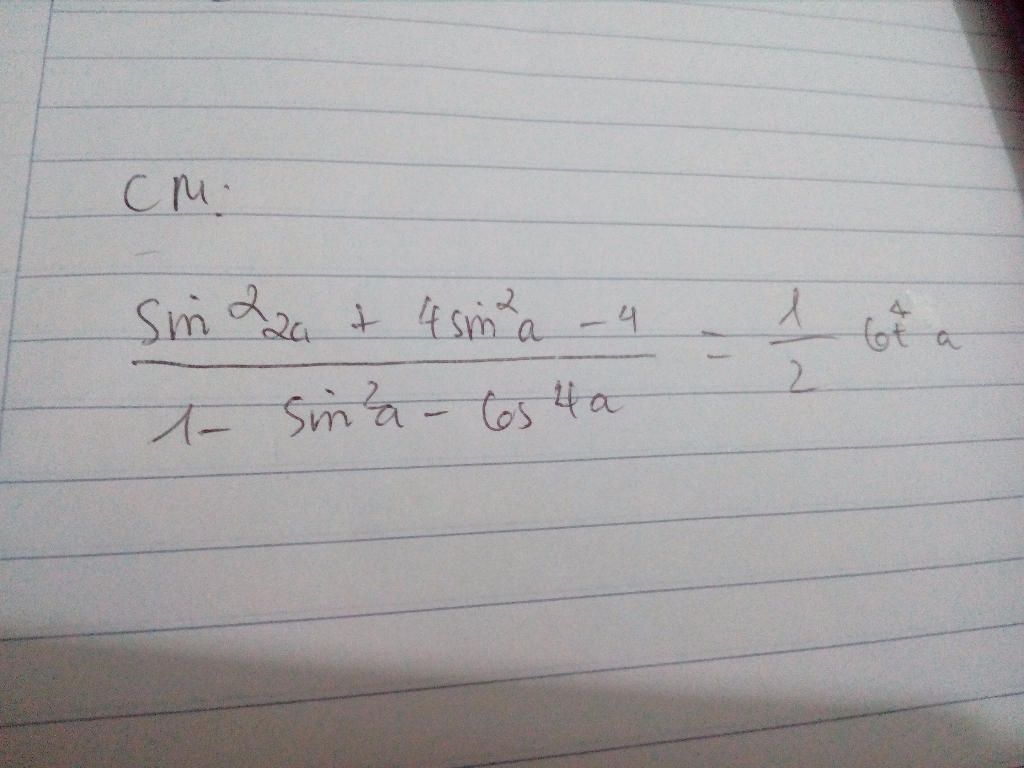 CM:
(sin²2a + 4sin²a - 4) / (1 - sin²a - cos4a) = 1/2 cot⁴a